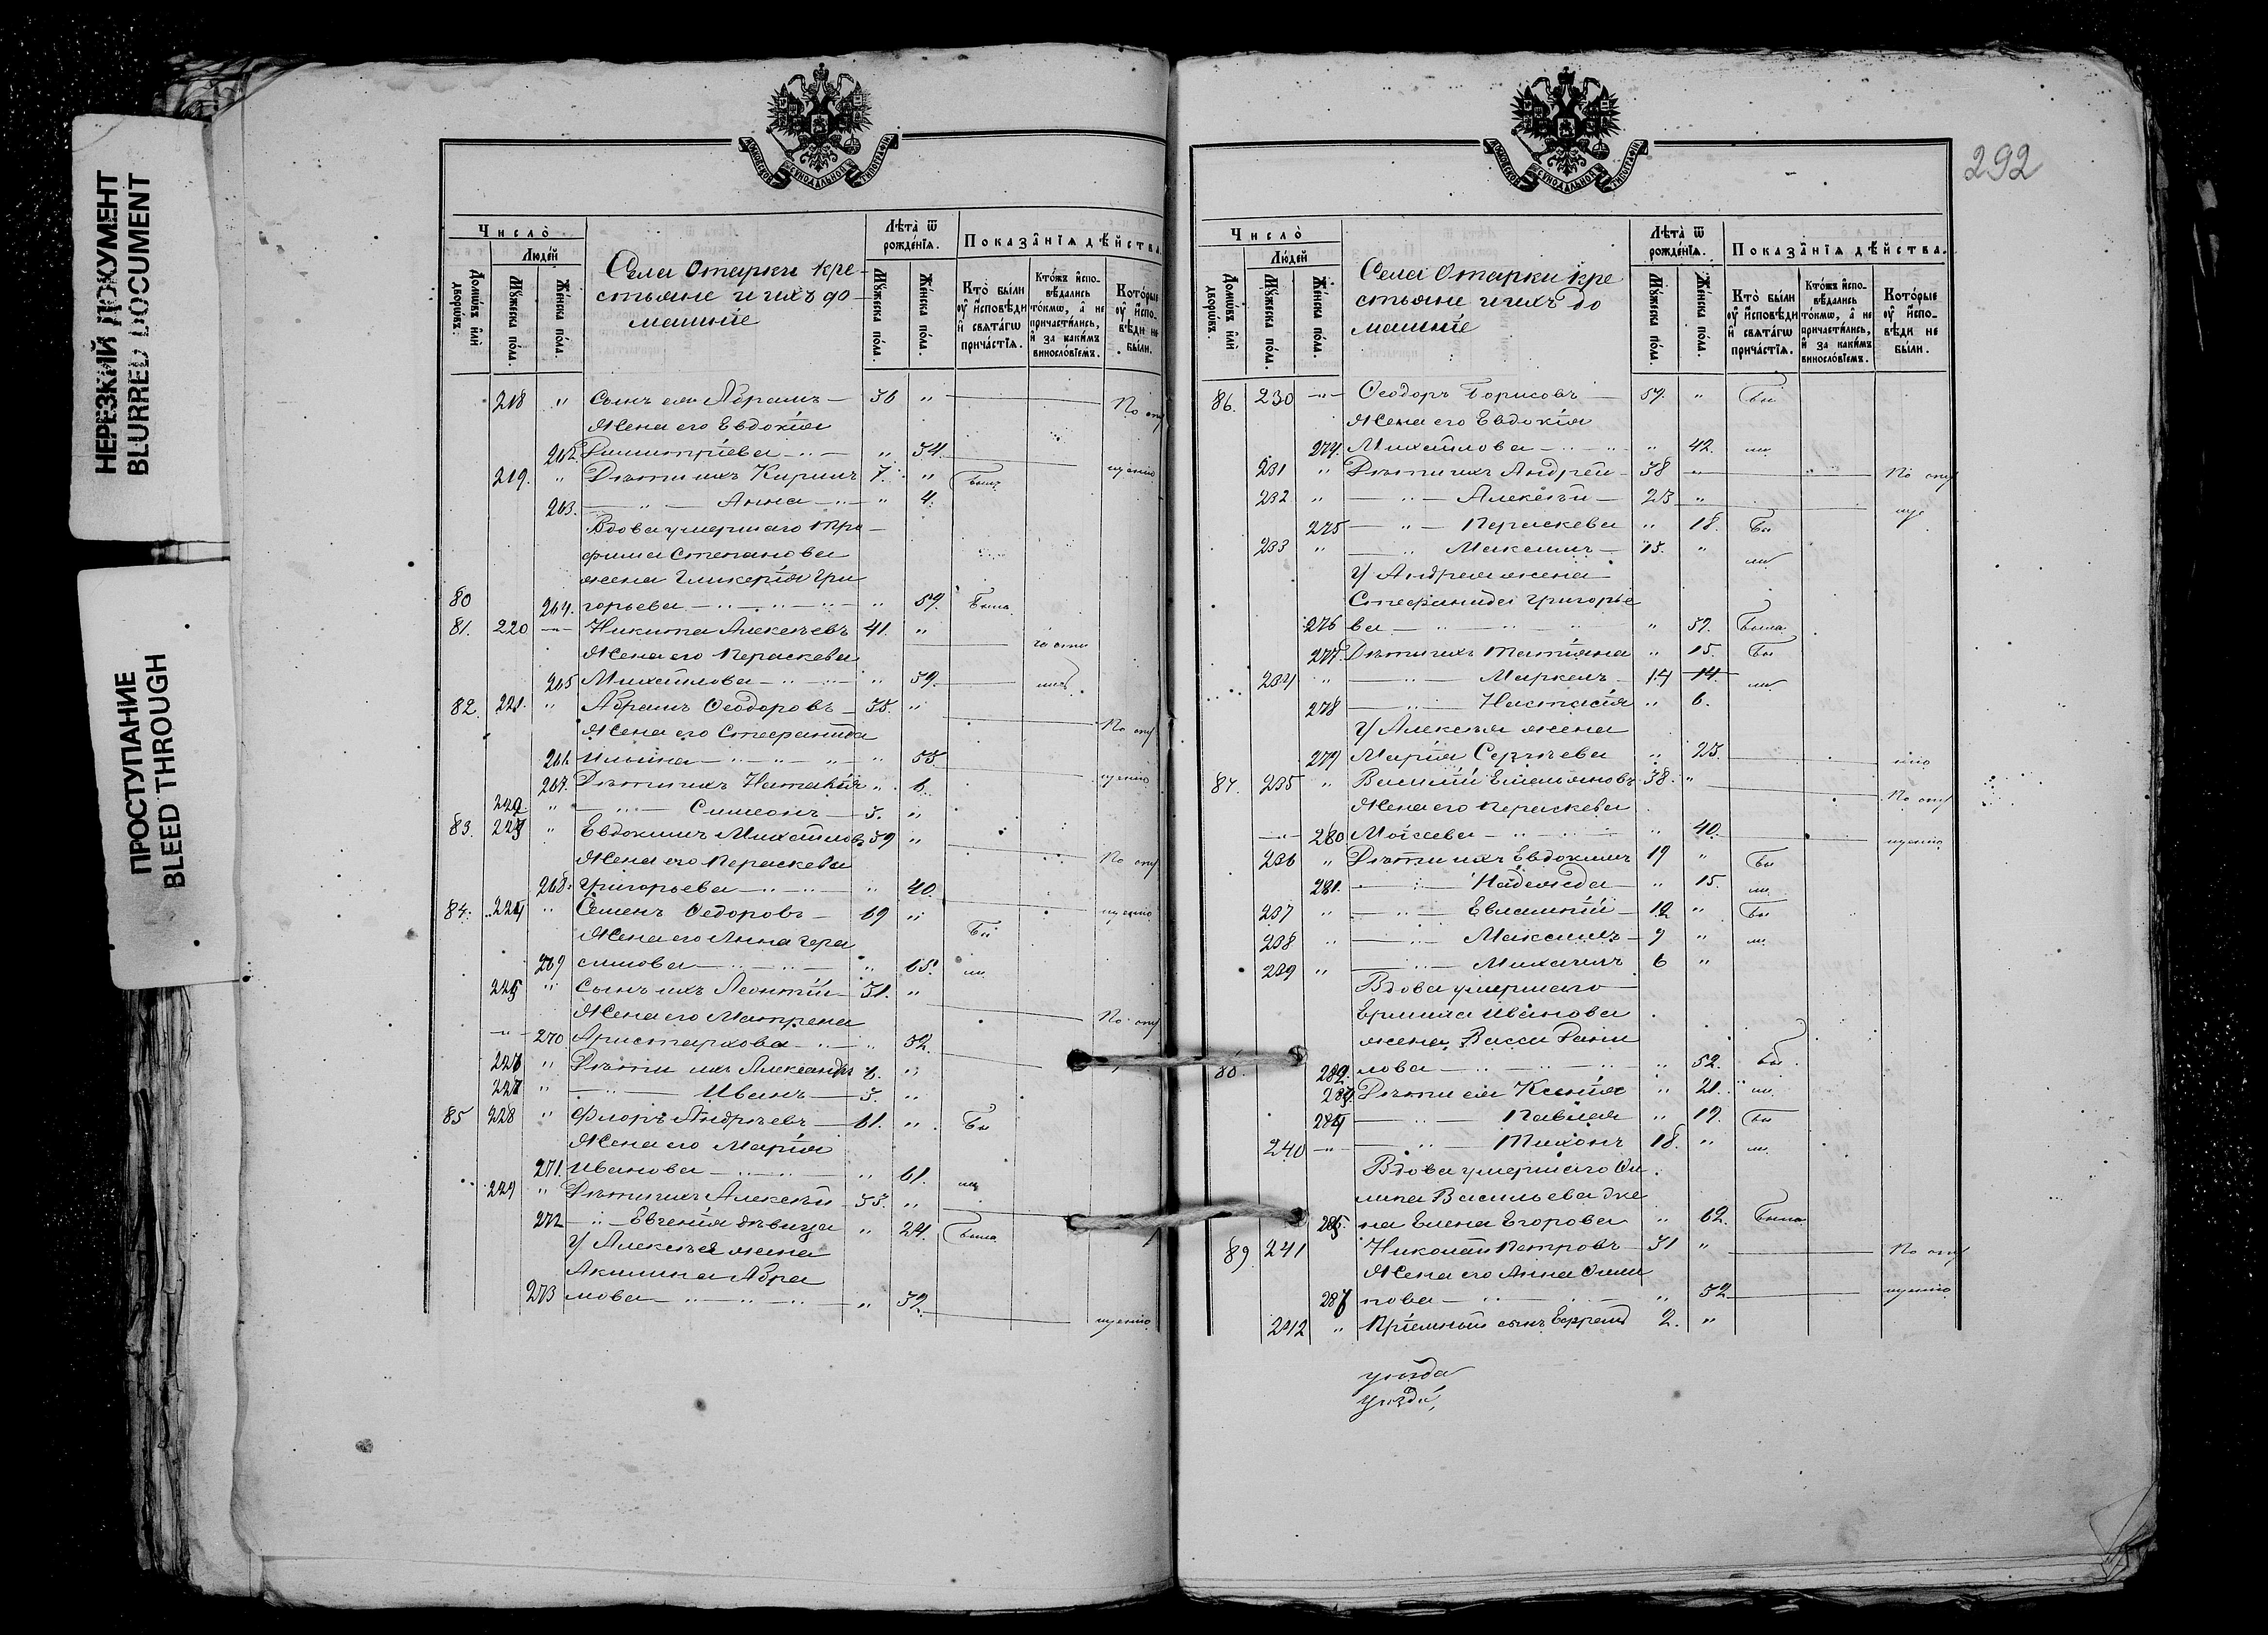 НЕРЕЗКИЙ ДОКУМЕНТ
BLURRED DOCUMENT
ПРОСТУПАНИЕ
BLEED THROUGH
МОСКОВСКОЙ СѴНОДАЛЬНОЙ ТИПОГРАФІИ
Число̀
Люде́й
Домѡ́въ и҆лѝ дворѡ́въ.
Мꙋ́жеска по́ла.
Же́нска по́ла.
Села Отарки кре-
стьяне и ихъ до-
машніе
Лѣ́та ѿ рожде́нїѧ.
Мꙋ́жеска по́ла.
Же́нска по́ла.
Показа̑нїѧ дѣ́йства.
Кто̀ бы́ли ᲂу҆ и҆сповѣ́ди и҆ ст҃а́гѡ прича́стїѧ.
Кто́жъ и҆спо-вѣ́дались то́кмѡ, а҆ не причасти́лись, и҆ за каки́мъ винослові́емъ.
Кото́рые ᲂу҆ и҆спо-вѣ́ди не бы́ли.
218 " Сынъ ея Абрамъ — 36 " По опу
Жена его Евдокія
262 Димитріева — " 34. щенію
219. " Дѣти ихъ Кириллъ 7. " Былъ
263. — " — Анна — " 4.
Вдова умершаго Тро-
фима Степанова
жена Гликерія Гри
80 264. горьева — " 59. Была
81. 220 — Никита Алексѣевъ 41. "
Жена его Параскева
265 Михайлова — " 39.
82. 221. " Абрамъ Ѳеодоровъ — 35. "
Жена его Стефанида По опу
266. Ильина — " 35.
267. Дѣти ихъ Наталія " 6. щенію
222. " — Симеонъ — 3. "
83. 223 " Евдокимъ Михайловъ 39 "
Жена его Параскева По опу
268. Григорьева — " 40.
84. 224 " Семенъ Ѳедоровъ — 69 " щенію
Жена его Анна Гера Бы
269 симова — " 65. ли
225 " Сынъ ихъ Леонтій — 31. "
Жена его Матрена По опу
270. Аристархова — " 32.
226 " Дѣти ихъ Александръ 6. "
227 " — Иванъ — 3. "
85 228 " Флоръ Андрѣевъ — 61. " Бы
Жена его Марія
271. Иванова — " 61. ли
229 " Дѣти ихъ Алексѣй — 33. "
272 — " — Евгенія дѣвица " 24. Была
У Алексѣя жена
Акилина Абра
273 мова — " 32. щенію
292
МОСКОВСКОЙ СѴНОДАЛЬНОЙ ТИПОГРАФІИ
Число̀
Люде́й
Домѡ́въ и҆лѝ дворѡ́въ.
Мꙋ́жеска по́ла.
Же́нска по́ла.
Села Отарки кре
стьяне и ихъ до
машніе
Лѣ́та ѿ рожде́нїѧ.
Мꙋ́жеска по́ла.
Же́нска по́ла.
Показа̑нїѧ дѣ́йства.
Кто̀ бы́ли ᲂу҆ и҆сповѣ́ди и҆ ст҃а́гѡ прича́стїѧ.
Кто́жъ и҆спо-вѣ́дались то́кмѡ, а҆ не причасти́лись, и҆ за каки́мъ винослові́емъ.
Кото́рые ᲂу҆ и҆спо-вѣ́ди не бы́ли.
86. 230 — Ѳеодоръ Борисовъ — 59. " Бы
Жена его Евдокія
274. Михайлова — " 42. ли
231 " Дѣти ихъ Андрей — 38 " По опу
232 " — Алексѣй — 23 "
275 — " — Параскева " 18. Бы
233 " — Максимъ — 15. "
У Андрея жена ли
Стефанида Григорье
276 ва — " 39. Была
277. Дѣти ихъ Татіана " 15. Бы
234 " — Маркелъ — 14 14. ли
278 — Настасія " 6.
У Алексѣя жена
279 Марія Сергѣева " 25.
87. 235 " Василій Емельяновъ 38. "
Жена его Параскева По опу
280 Моисеева — " 40.
236 " Дѣти ихъ Евдокимъ 19 " Бы щенію
281. — Надежда — " 15. ли
237 " — Евлампій — 12 " Бы
238 " — Максимъ — 9 " ли
239 " — Михаилъ 6 "
Вдова умершаго
Ермила Иванова
жена Васса Дани
88. 282. лова — " 52. Бы
283. Дѣти ея Ксенія " 21. ли
284 — Павлая " 19. Бы
240 — Тихонъ 18. " ли
Вдова умершаго Фи
липа Васильева же
285. на Елена Егорова " 62. Была
89. 241 Николай Петровъ — 31 " По опу
Жена его Анна Фили
286 пова — " 32 щенію
242 " Пріемный сынъ Ефремъ 2. "
уѣзда
уѣзда,